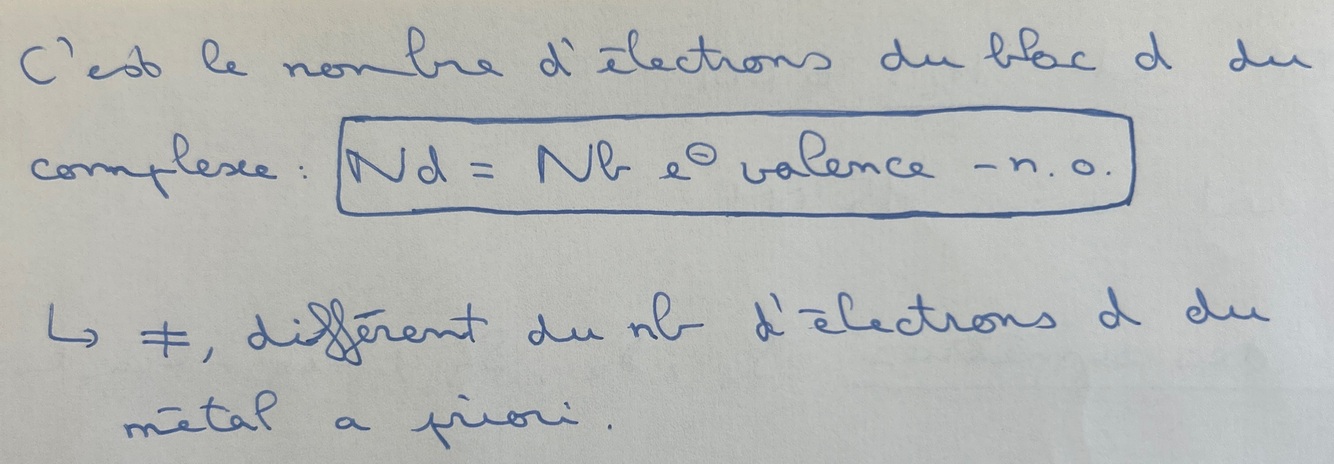 C'est le nombre d'électrons du bloc d du
complexe : Nd = Nb e⊖ valence - n.o.
↳ ≠, différent du nb d'électrons d du
métal a priori.